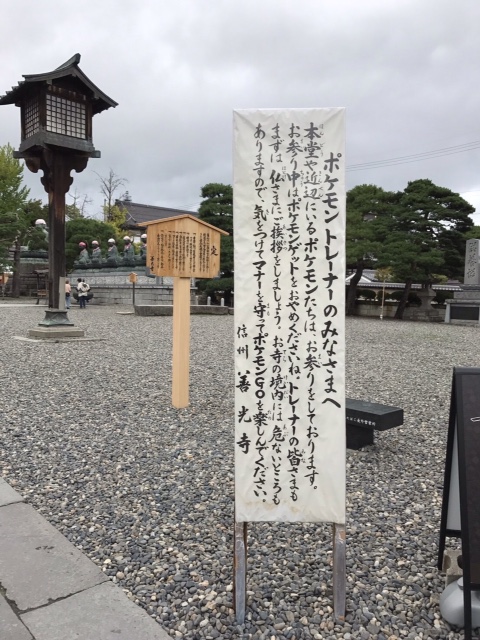 ポケモントレーナーのみなさまへ
本堂や近辺にいるポケモンたちは、お参りをしております。
お参り中はポケモンゲットをおやめくださいね。トレーナーの皆さまも
まずは仏さまにご挨拶をしましょう。お寺の境内には危ないところも
ありますので、気をつけてマナーを守ってポケモンGOを楽しんでください。
信州 善光寺
定